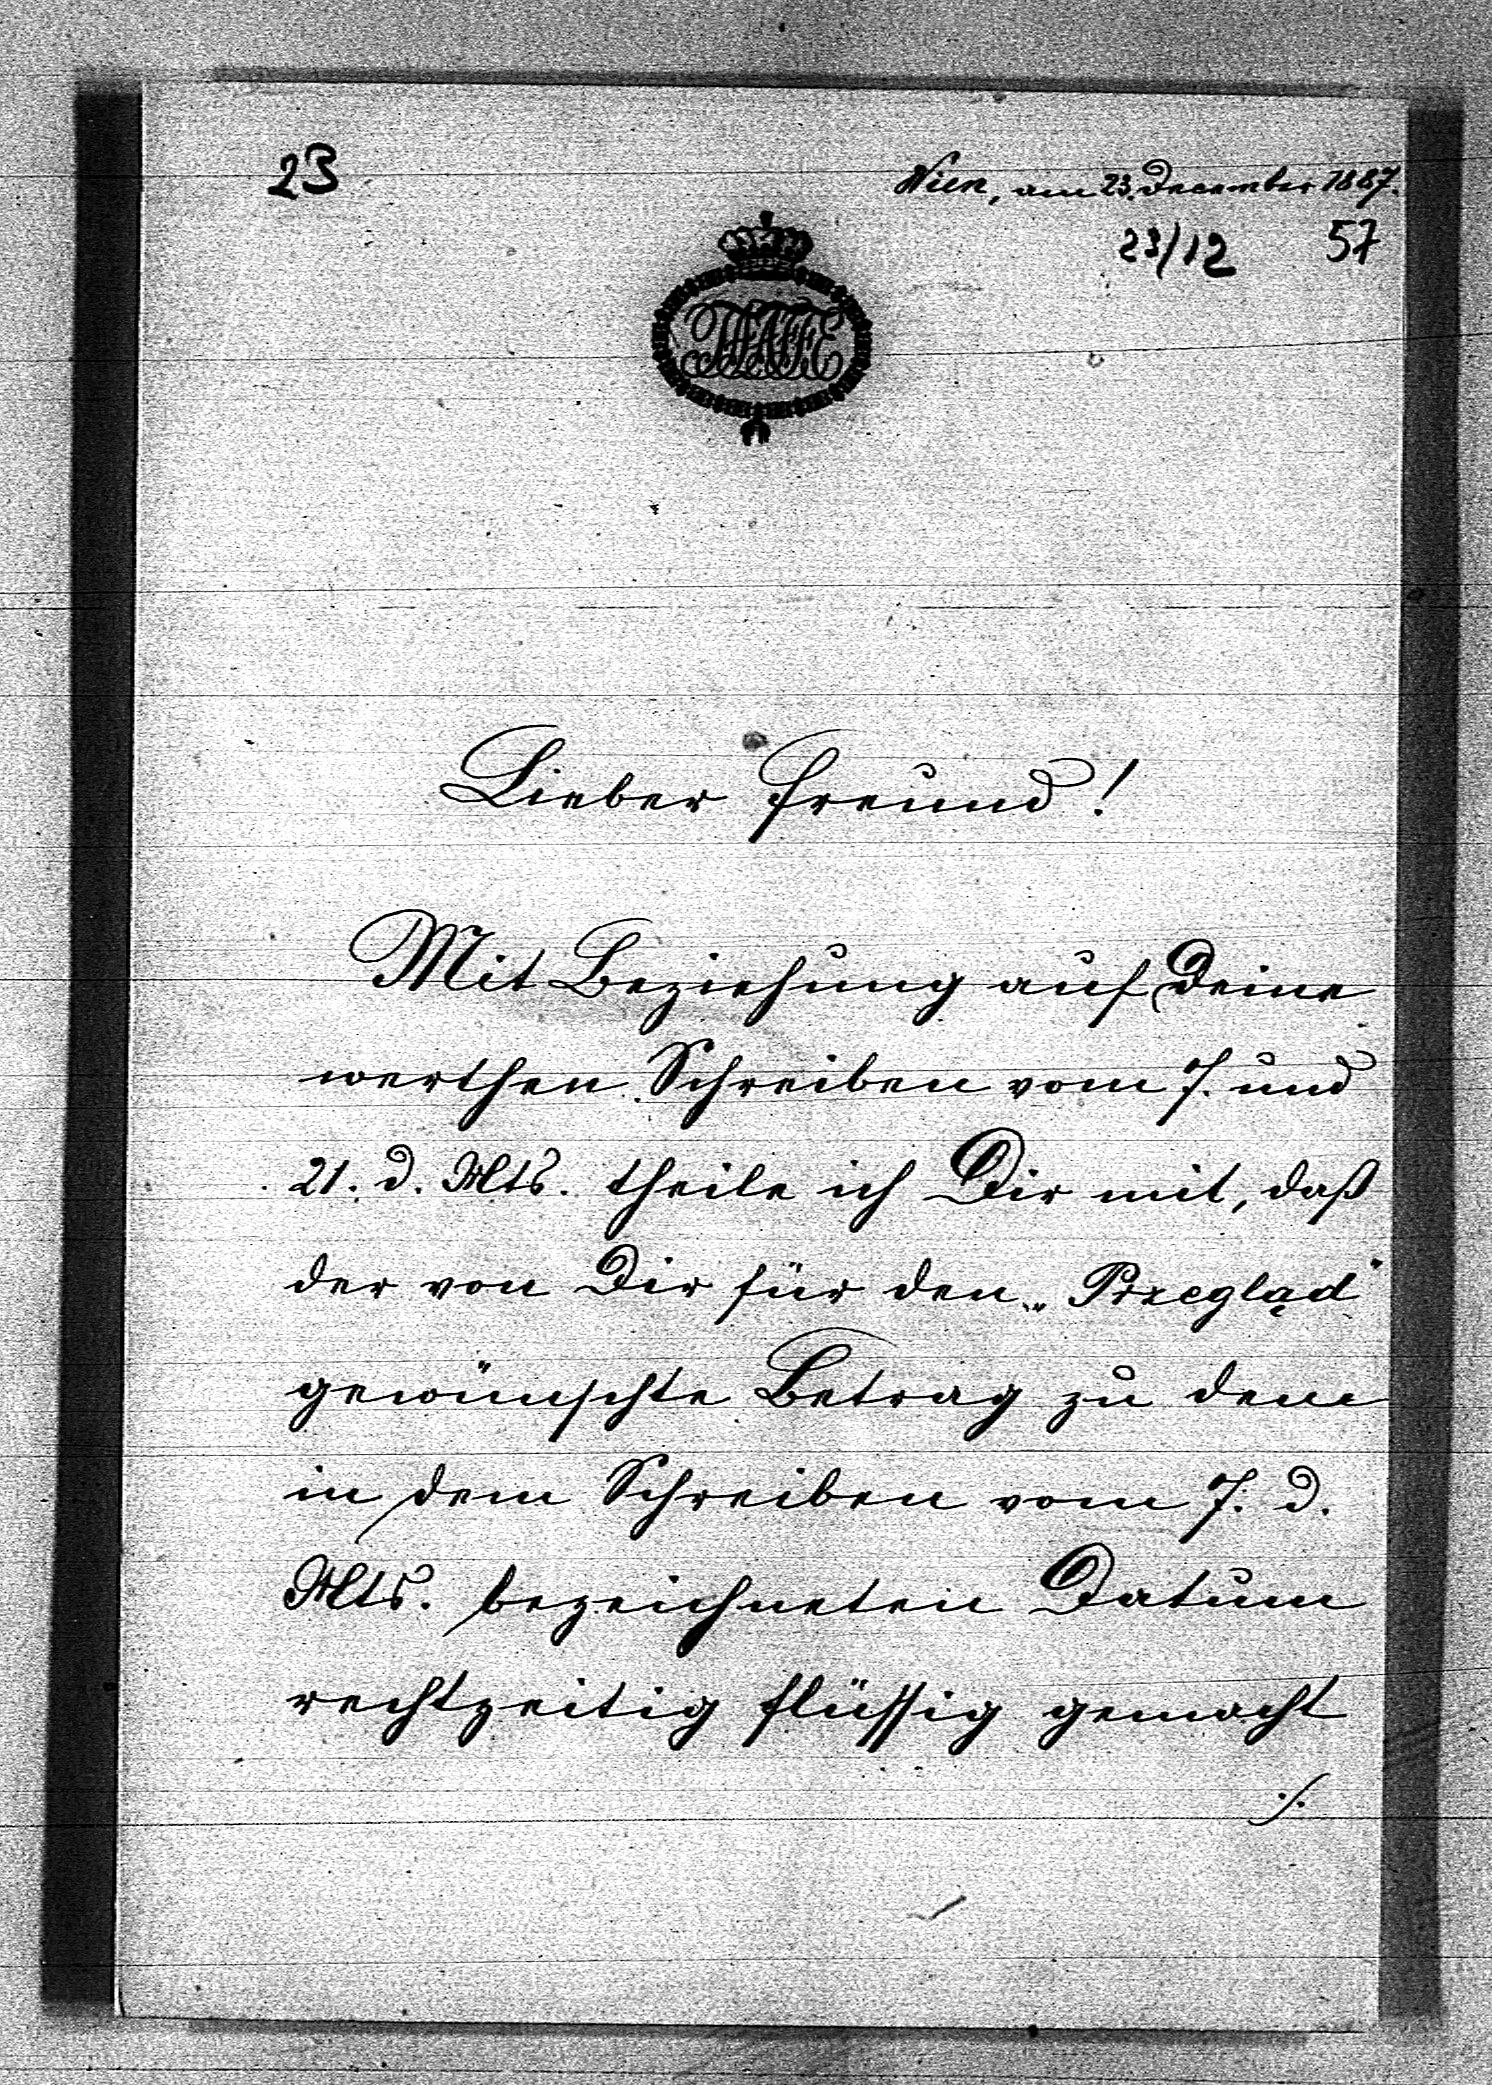 23
Wien, am 23. December 1887.
23/12 57
TAAFFE
Lieber Freund!
Mit Beziehung auf Deine
werthen Schreiben vom 7. und
21. d. Mts. theile ich Dir mit, daß
der von Dir für den „Przegląd"
gewünschte Betrag zu dem
in dem Schreiben vom 7. d.
Mts. bezeichneten Datum
rechtzeitig flüssig gemacht
./.